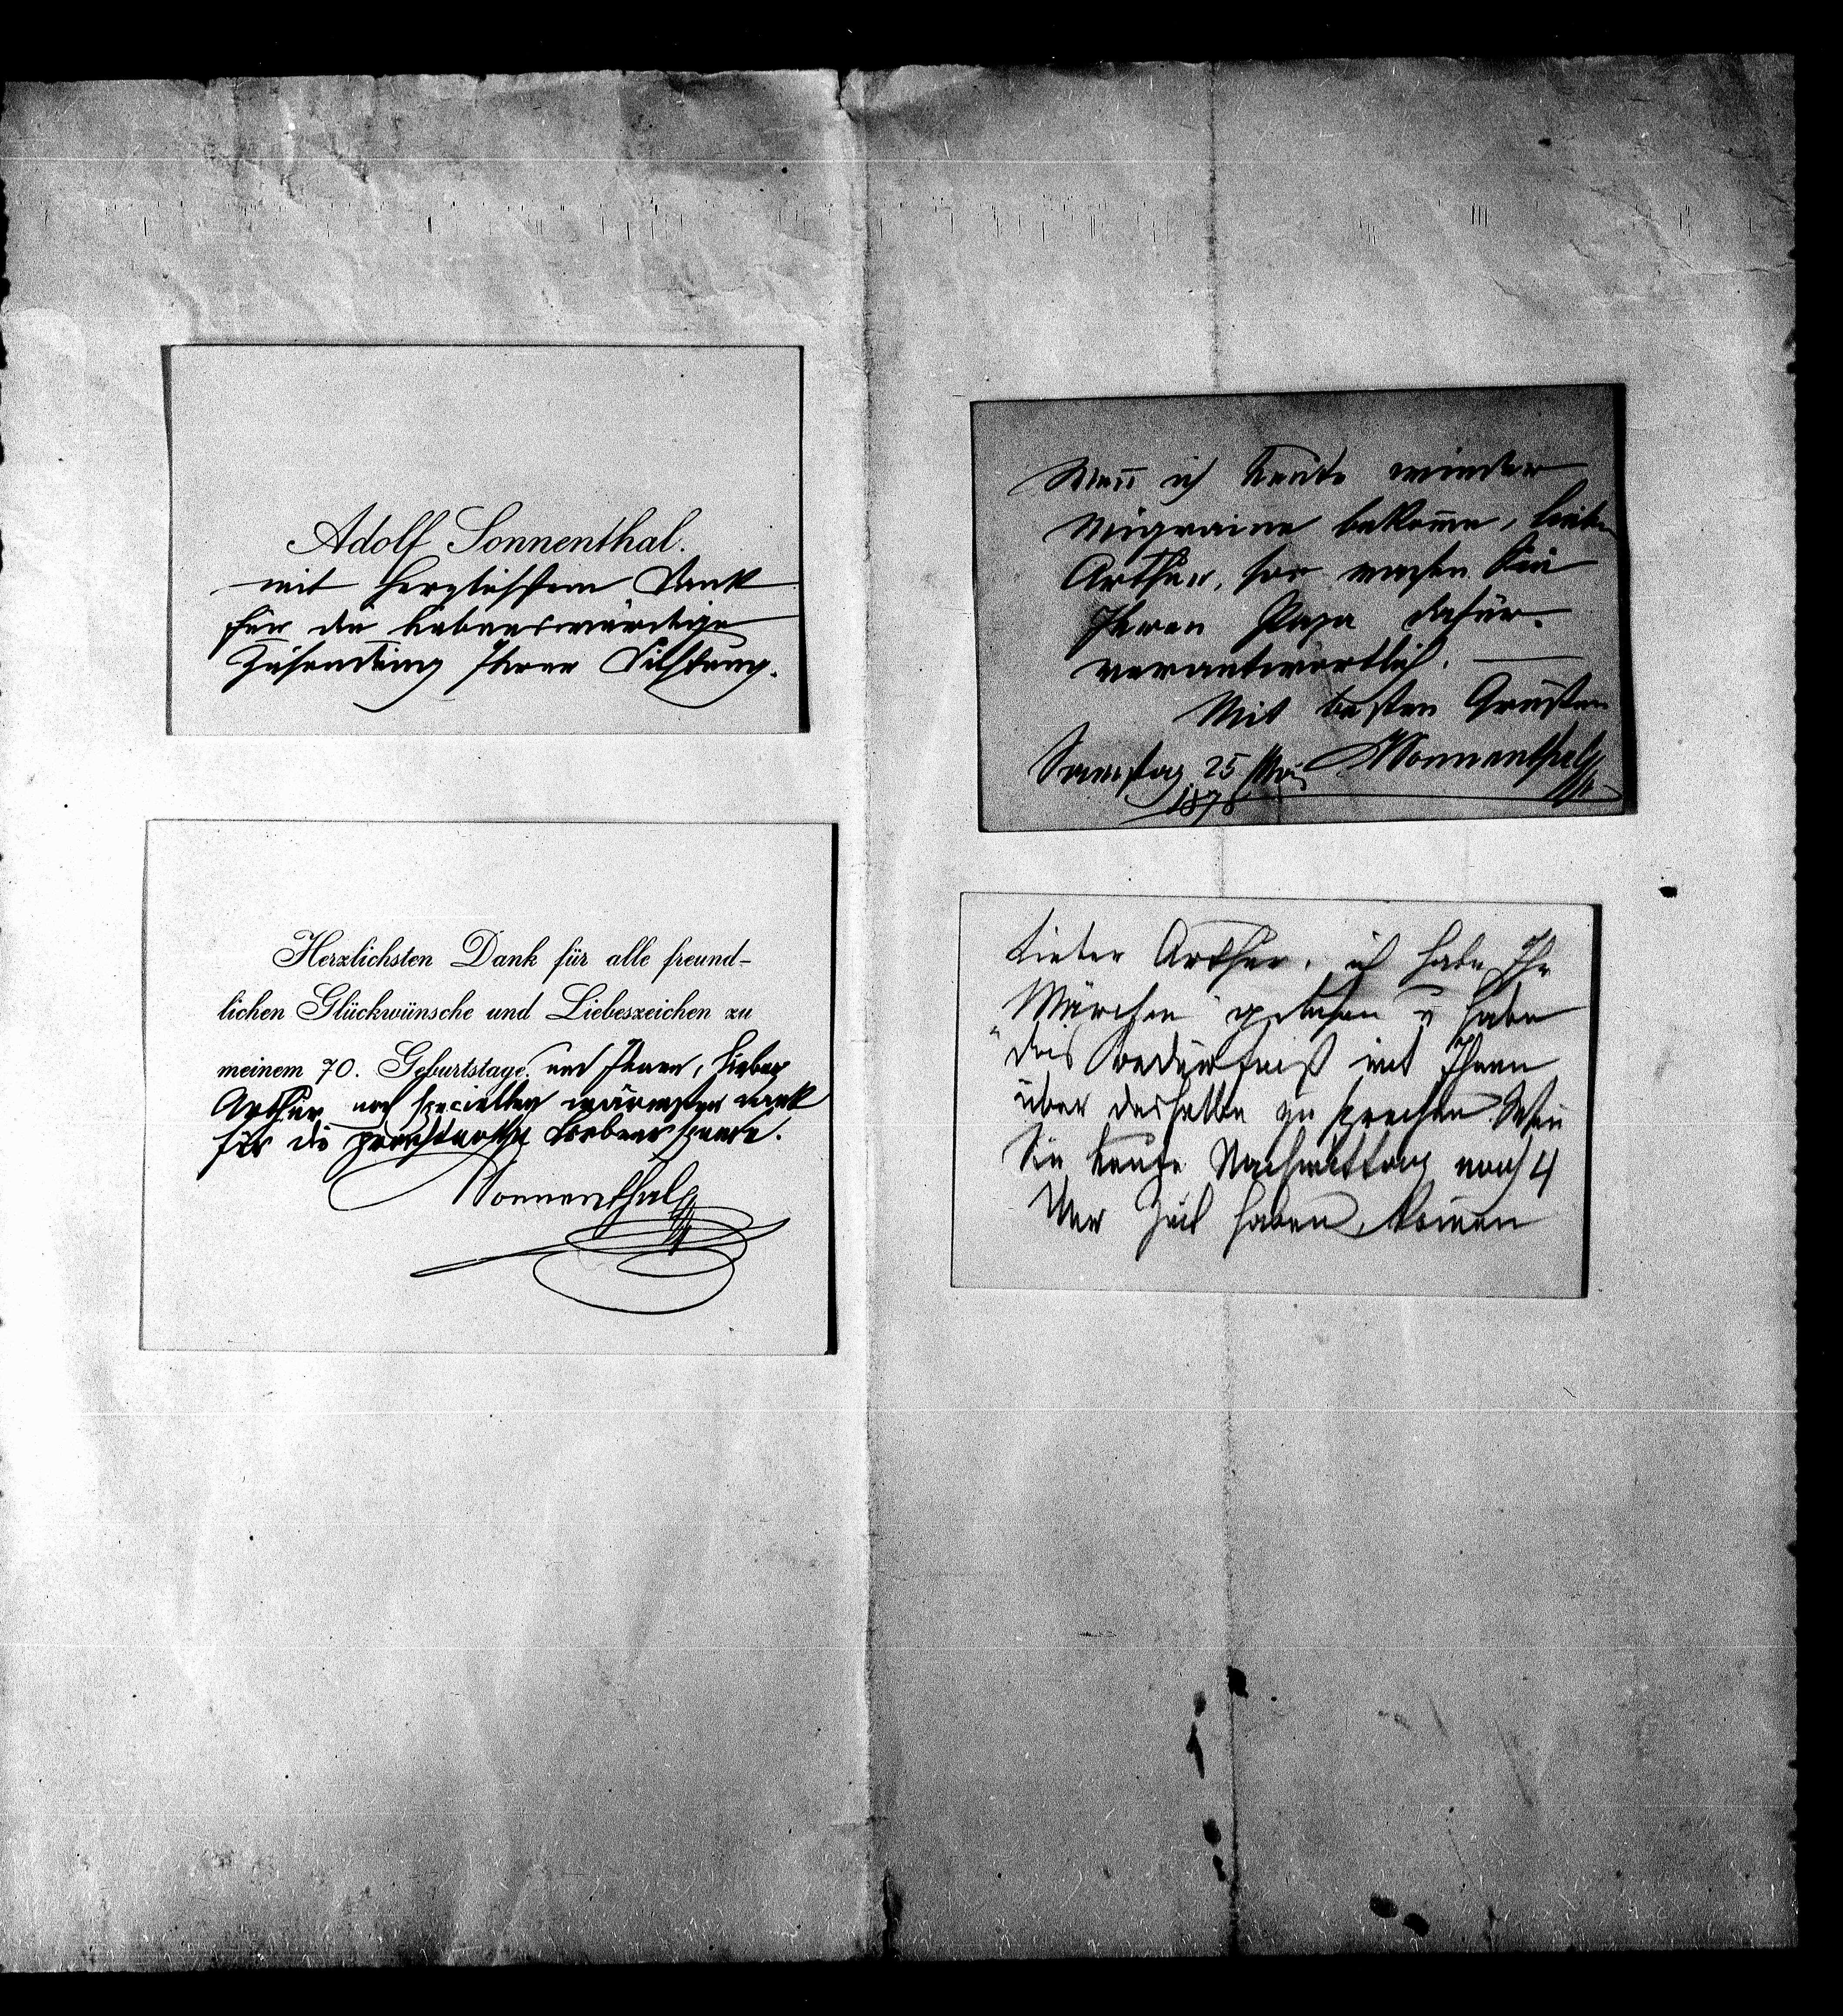 Adolf Sonnenthal.
mit herzlichstem Dank
für die liebenswürdige
Zusendung Ihrer Dichtung.
Herzlichsten Dank für alle freund-
lichen Glückwünsche und Liebeszeichen zu
meinem 70. Geburtstage. und Ihnen, lieber
Arthur noch speciellen wärmsten Dank
für die prachtvolle Lorbeerspende.
Sonnenthal
Wenn ich heute wieder
Migraine bekome, lieber
Arthur, so machen Sie
Ihren Papa dafür
verantwortlich. —
Mit besten Grüßen
Samstag 25 Mai Sonnenthal
1878
Lieber Arthur, ich habe Ihr
"Märchen" gelesen u habe
das Bedürfniß mit Ihnen
über dasselbe zu sprechen. Wen
Sie heute Nachmittag nach 4
Uhr Zeit haben, kömen